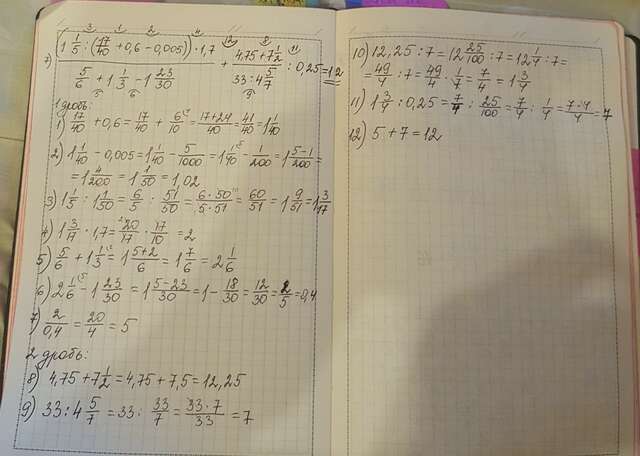 3 1 2 4 12 8 11
7) (1 1/5 : (17/40 + 0,6 - 0,005)) · 1,7 / (5/6 + 1 1/3 - 1 23/30) + (4,75 + 7 1/2) / (33 : 4 5/7) : 0,25 = 12
5 6 9
1 дробь:
1) 17/40 + 0,6 = 17/40 + 6/10 = (17+24)/40 = 41/40 = 1 1/40
2) 1 1/40 - 0,005 = 1 1/40 - 5/1000 = 1 1/40 - 1/200 = 1 (5-1)/200 =
= 1 4/200 = 1 1/50 = 1,02
3) 1 1/5 : 1 1/50 = 6/5 : 51/50 = (6·50)/(5·51) = 60/51 = 1 9/51 = 1 3/17
4) 1 3/17 · 1,7 = 20/17 · 17/10 = 2
5) 5/6 + 1 1/3 = 1 (5+2)/6 = 1 7/6 = 2 1/6
6) 2 1/6 - 1 23/30 = 1 (5-23)/30 = 1 - 18/30 = 12/30 = 2/5 = 0,4
7) 2/0,4 = 20/4 = 5
2 дробь:
8) 4,75 + 7 1/2 = 4,75 + 7,5 = 12,25
9) 33 : 4 5/7 = 33 : 33/7 = (33·7)/33 = 7
10) 12,25 : 7 = 12 25/100 : 7 = 12 1/4 : 7 =
= 49/4 : 7 = 49/4 · 1/7 = 7/4 = 1 3/4
11) 1 3/4 : 0,25 = 7/4 : 25/100 = 7/4 : 1/4 = (7·4)/4 = 7
12) 5 + 7 = 12